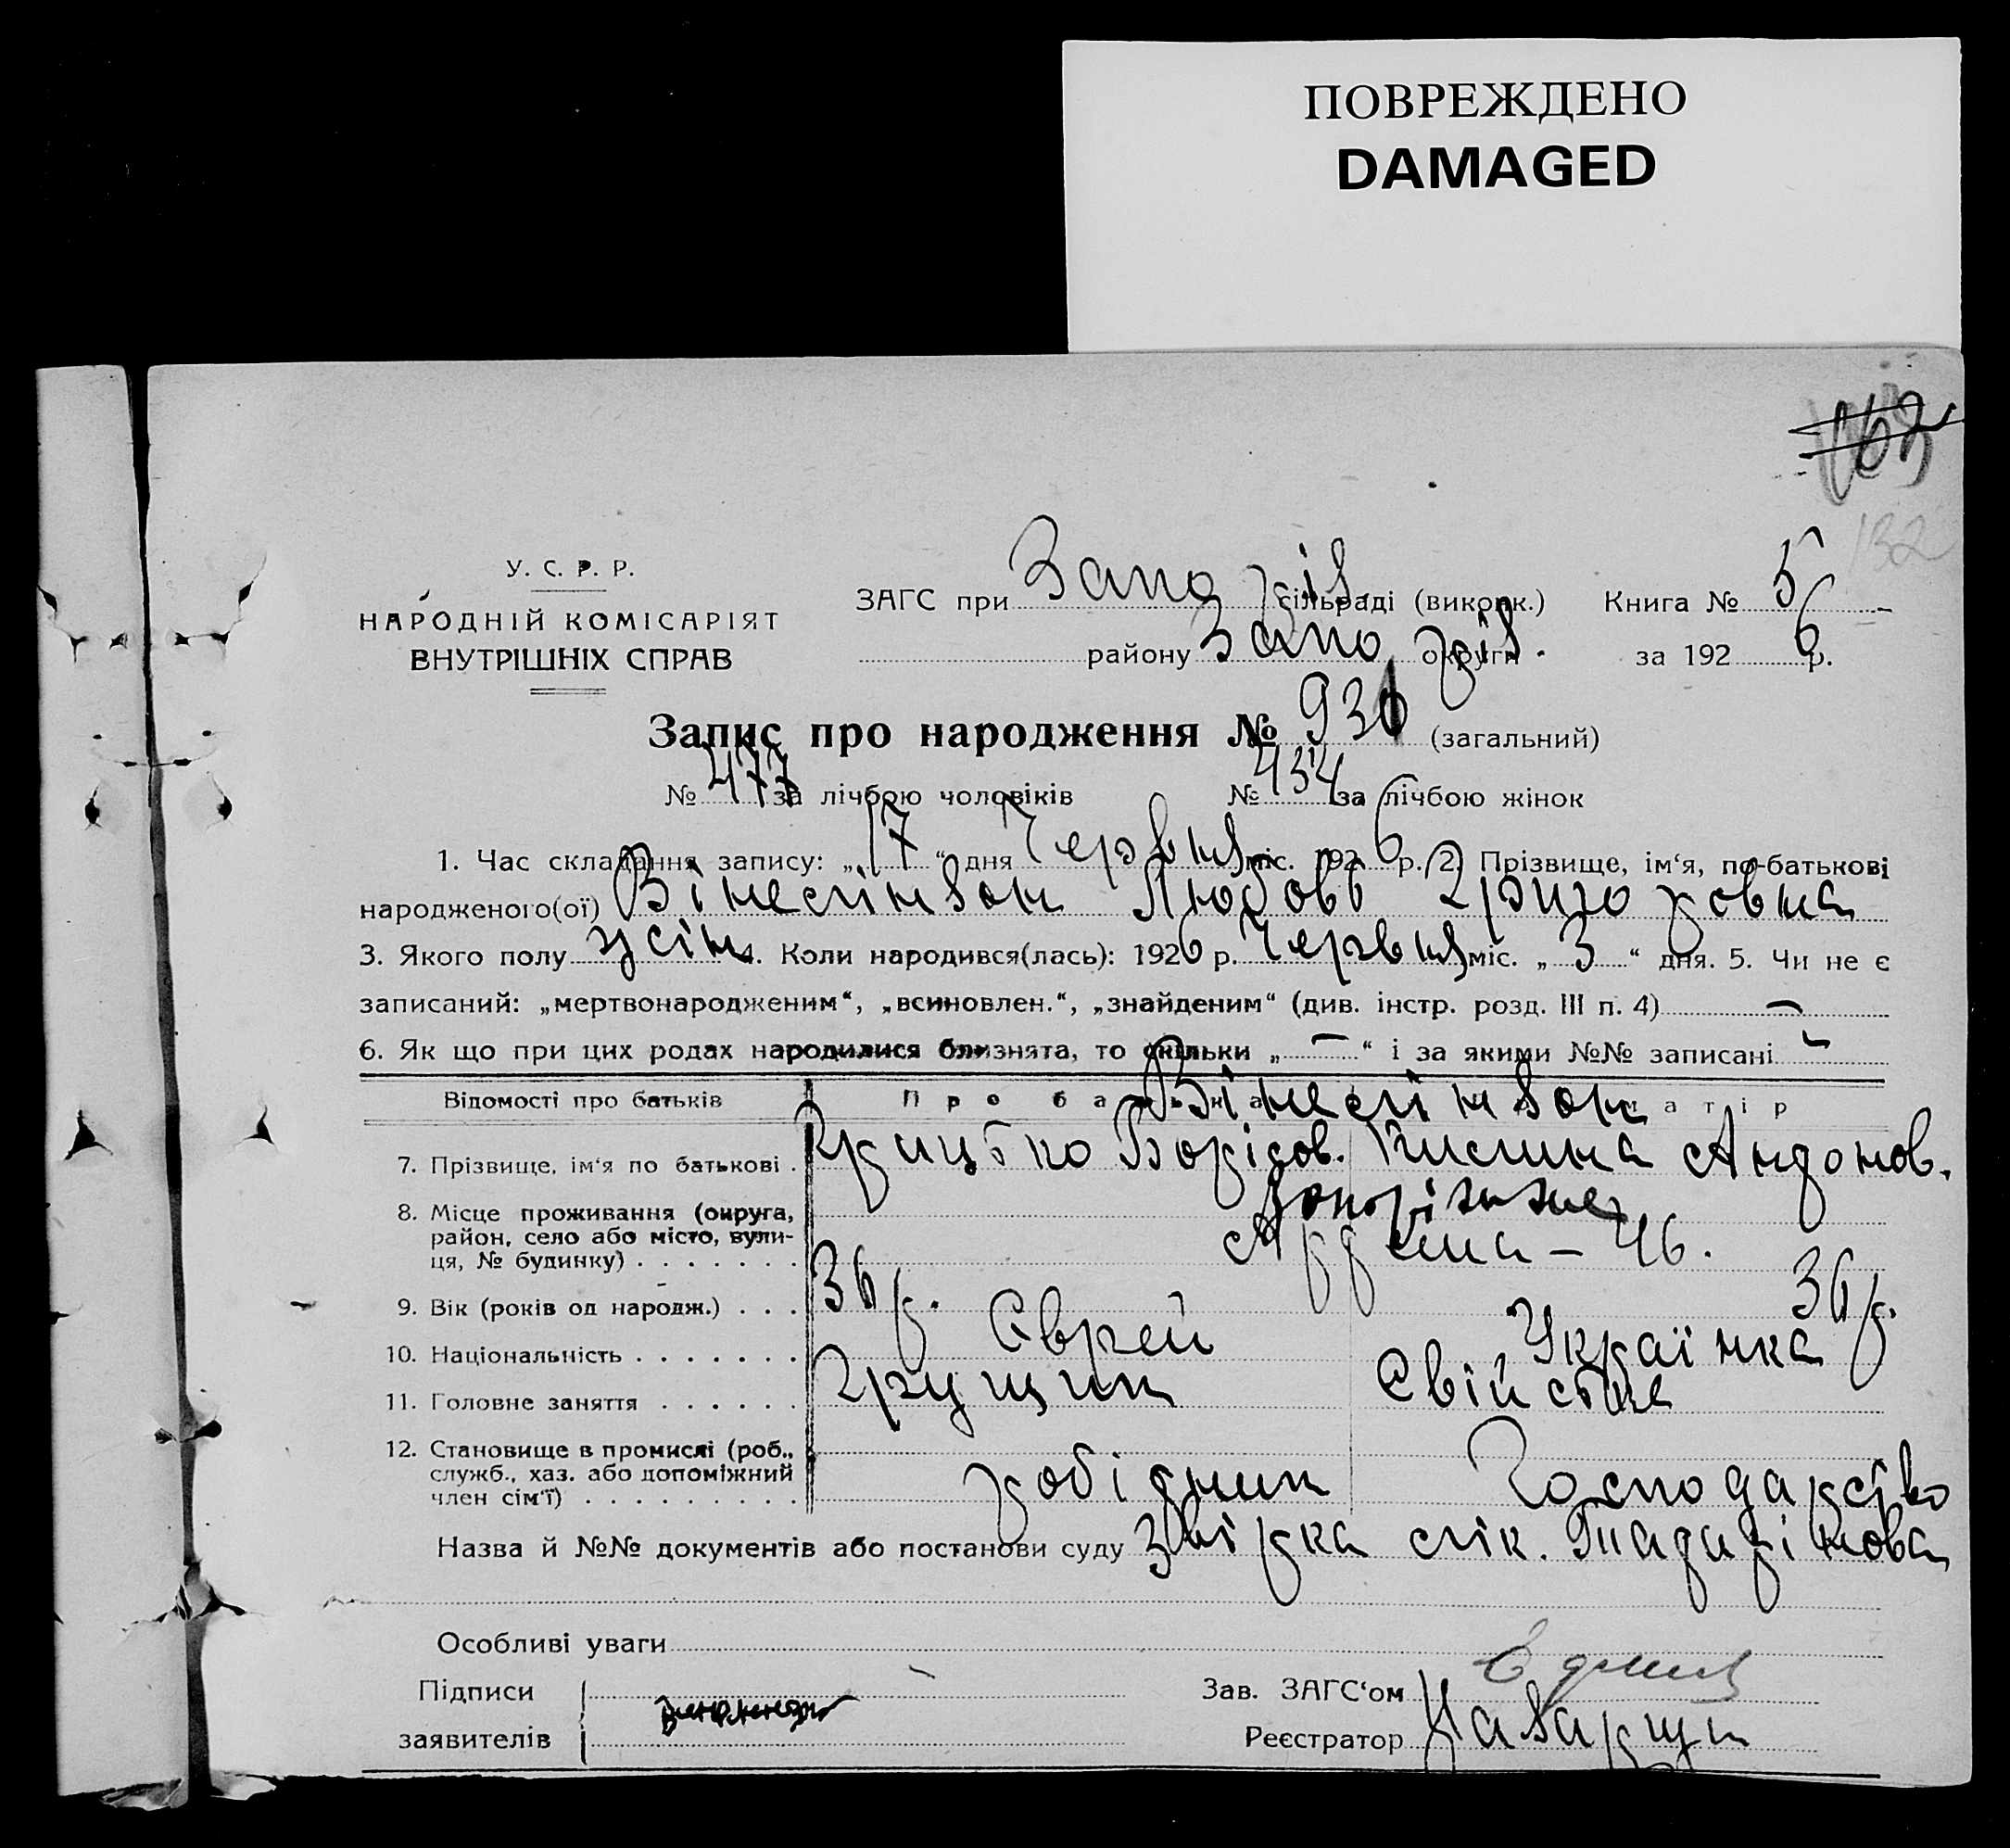 ПОВРЕЖДЕНО
DAMAGED
162
132
У. С. Р. Р.
НАРОДНІЙ КОМІСАРІЯТ
ВНУТРІШНІХ СПРАВ
ЗАГС при Запоріз. сільраді (виконк.) Книга № 5
району Запоріз. округи за 1926 р.
Запис про народження № 931 (загальний)
№ 477 за лічбою чоловіків № 454 за лічбою жінок
1. Час складання запису: „17“ дня Червня міс. 1926 р. 2. Прізвище, ім‘я, по-батькові
народженого(ої) Любовь Григоровна
3. Якого полу жін. 4. Коли народився(лась): 1926 р. Червня міс. „3“ дня. 5. Чи не є
записаний: „мертвонародженим“, „всиновлен.“, „знайденим“ (див. інстр. розд. III п. 4) —
6. Як що при цих родах народилися близнята, то скільки „—“ і за якими №№ записані —
Відомості про батьків Про батька матір
7. Прізвище, ім‘я по батькові . Борісов. Андонов.
8. Місце проживання (округа,
район, село або місто, вули-
ця, № будинку) . . . . . . . Запоріжже
46.
9. Вік (років од народж.) . . . 36 р. 36 р.
10. Національність . . . . . . . Єврей Українка
11. Головне заняття . . . . . . Грущик Свійське
12. Становище в промислі (роб.,
служб., хаз. або допоміжний
член сім‘ї) . . . . . . . . . . робідник Господарство
Назва й №№ документів або постанови суду лік.
Особливі уваги
Підписи
заявителів
Зав. ЗАГС‘ом
Реєстратор